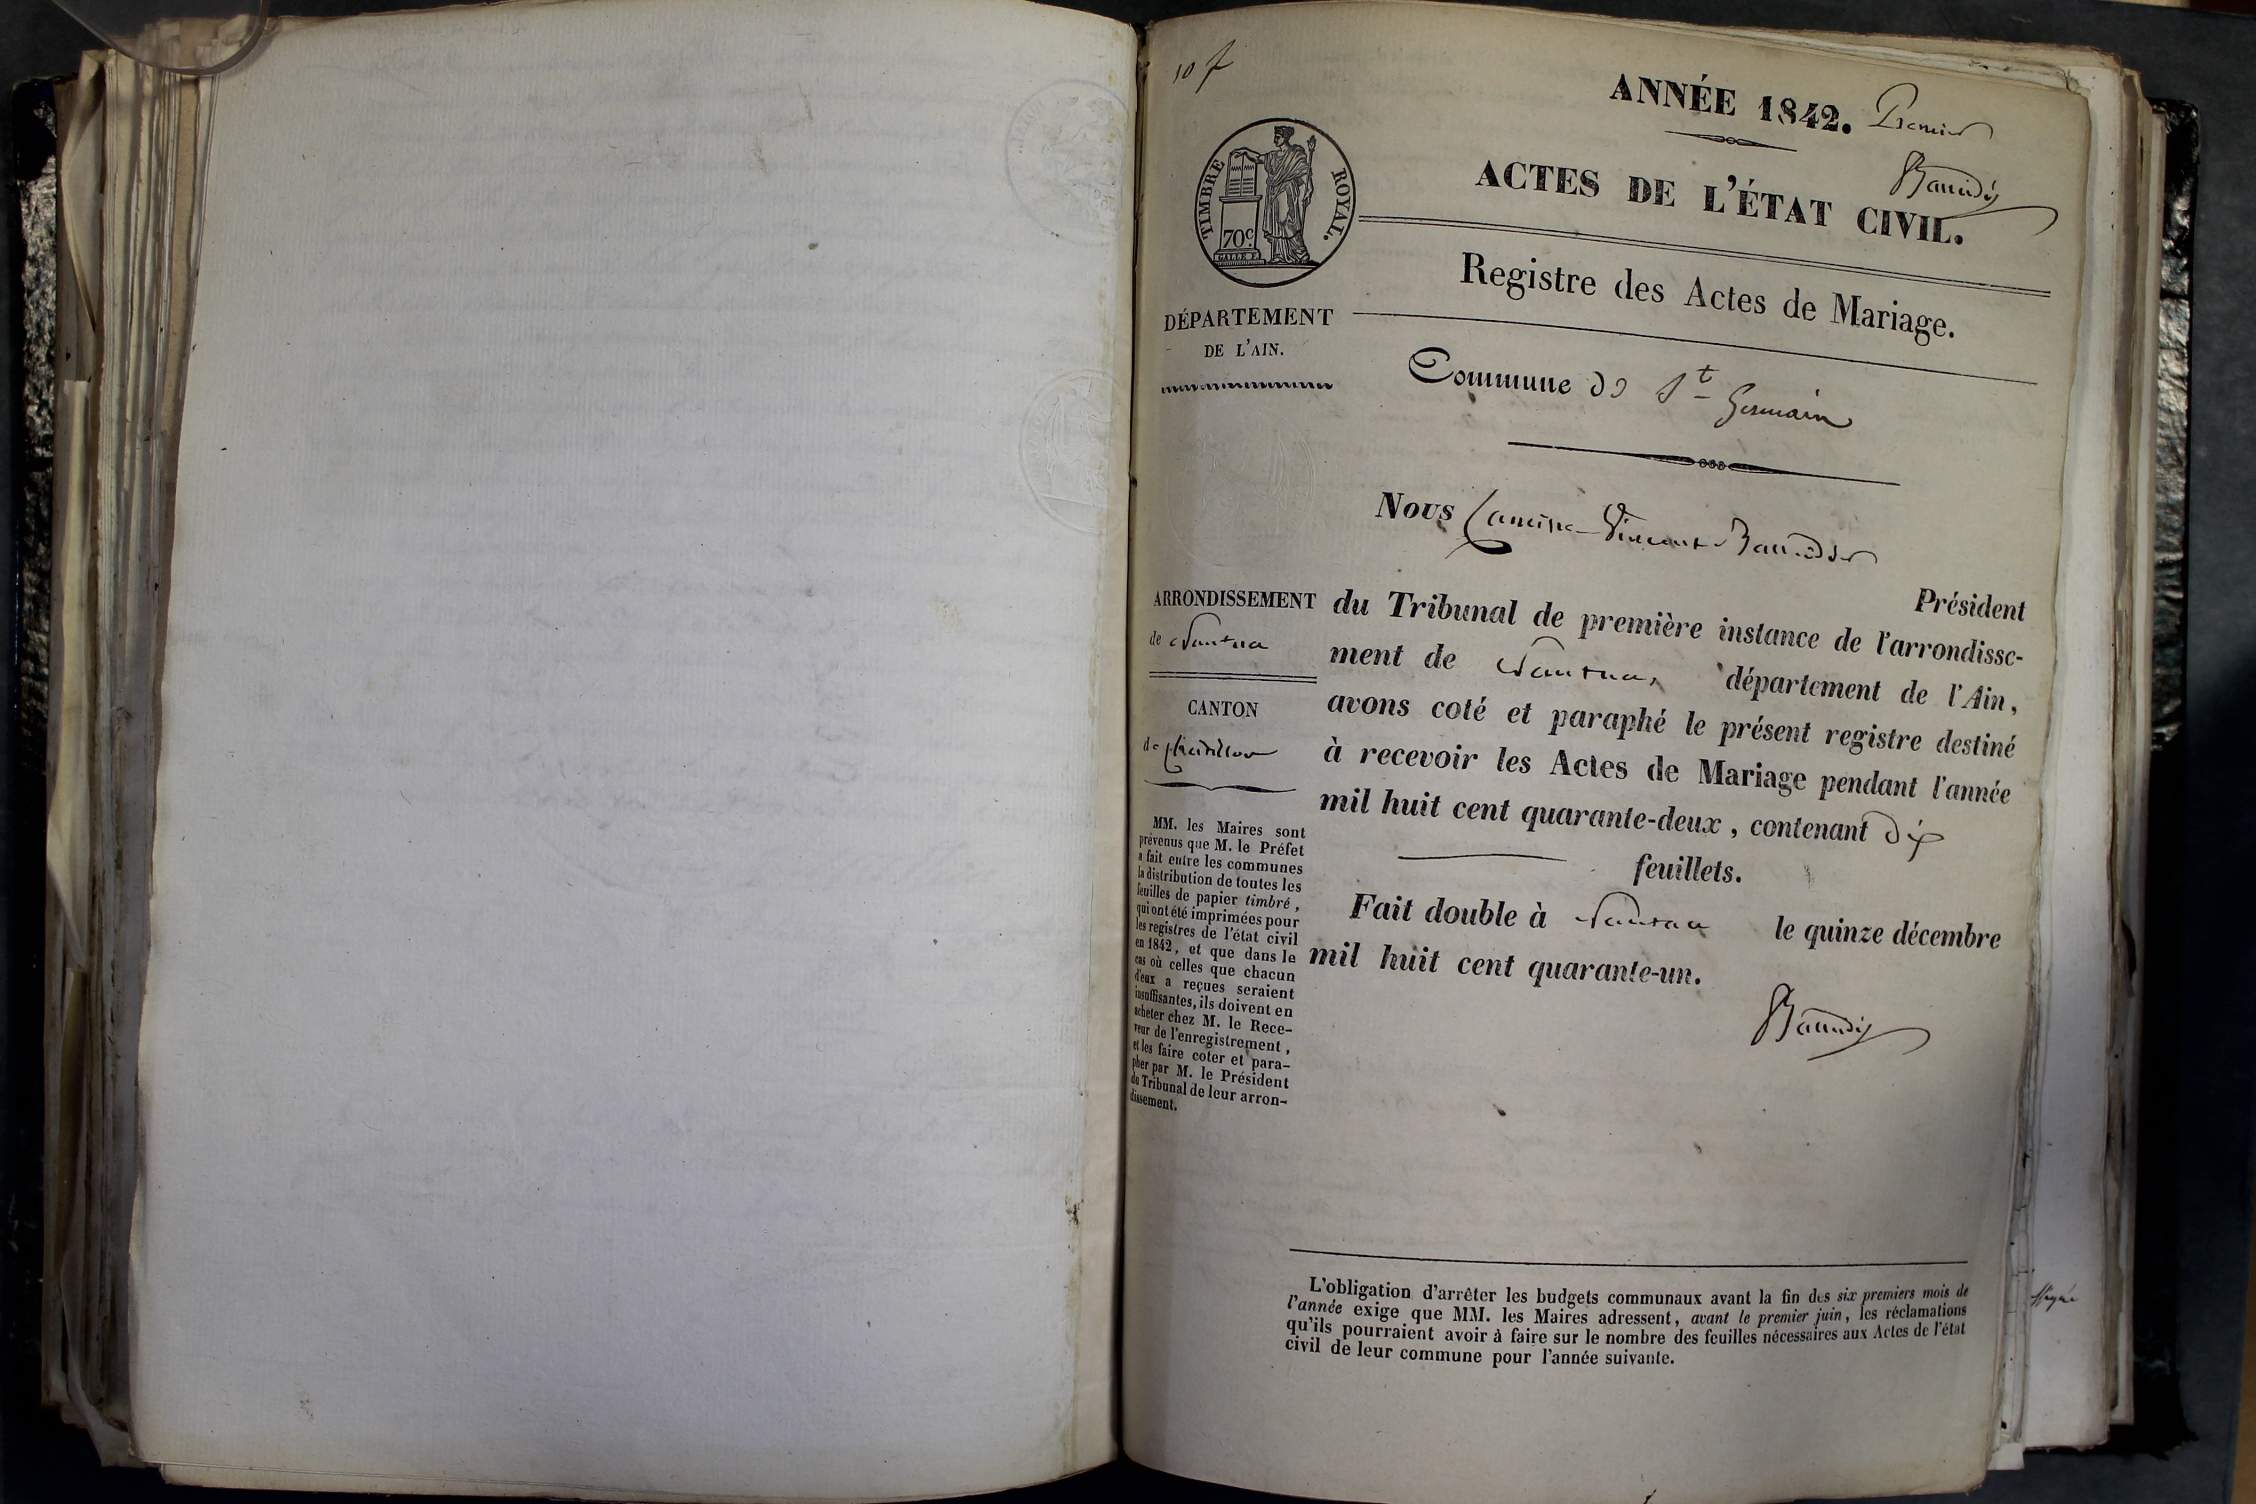 10 f
ANNÉE 1842. Premier
Baudier
ACTES DE L'ÉTAT CIVIL.
TIMBRE ROYAL.
70c.
Registre des Actes de Mariage.
DÉPARTEMENT
DE L'AIN.
Commune de St Germain
Nous Vincent
Président
ARRONDISSEMENT
de Nantua
du Tribunal de première instance de l'arrondisse-
ment de Nantua, département de l'Ain,
avons coté et paraphé le présent registre destiné
à recevoir les Actes de Mariage pendant l'année
mil huit cent quarante-deux, contenant dix
feuillets.
Fait double à Nantua le quinze décembre
mil huit cent quarante-un.
CANTON
de Chatillon
MM. les Maires sont
prévenus que M. le Préfet
a fait entre les communes
la distribution de toutes les
feuilles de papier timbré,
qui ont été imprimées pour
les registres de l'état civil
en 1842, et que dans le
cas où celles que chacun
d'eux a reçues seraient
insuffisantes, ils doivent en
acheter chez M. le Rece-
veur de l'enregistrement,
et les faire coter et para-
pher par M. le Président
du Tribunal de leur arron-
dissement.
L'obligation d'arrêter les budgets communaux avant la fin des six premiers mois de
l'année exige que MM. les Maires adressent, avant le premier juin, les réclamations
qu'ils pourraient avoir à faire sur le nombre des feuilles nécessaires aux Actes de l'état
civil de leur commune pour l'année suivante.